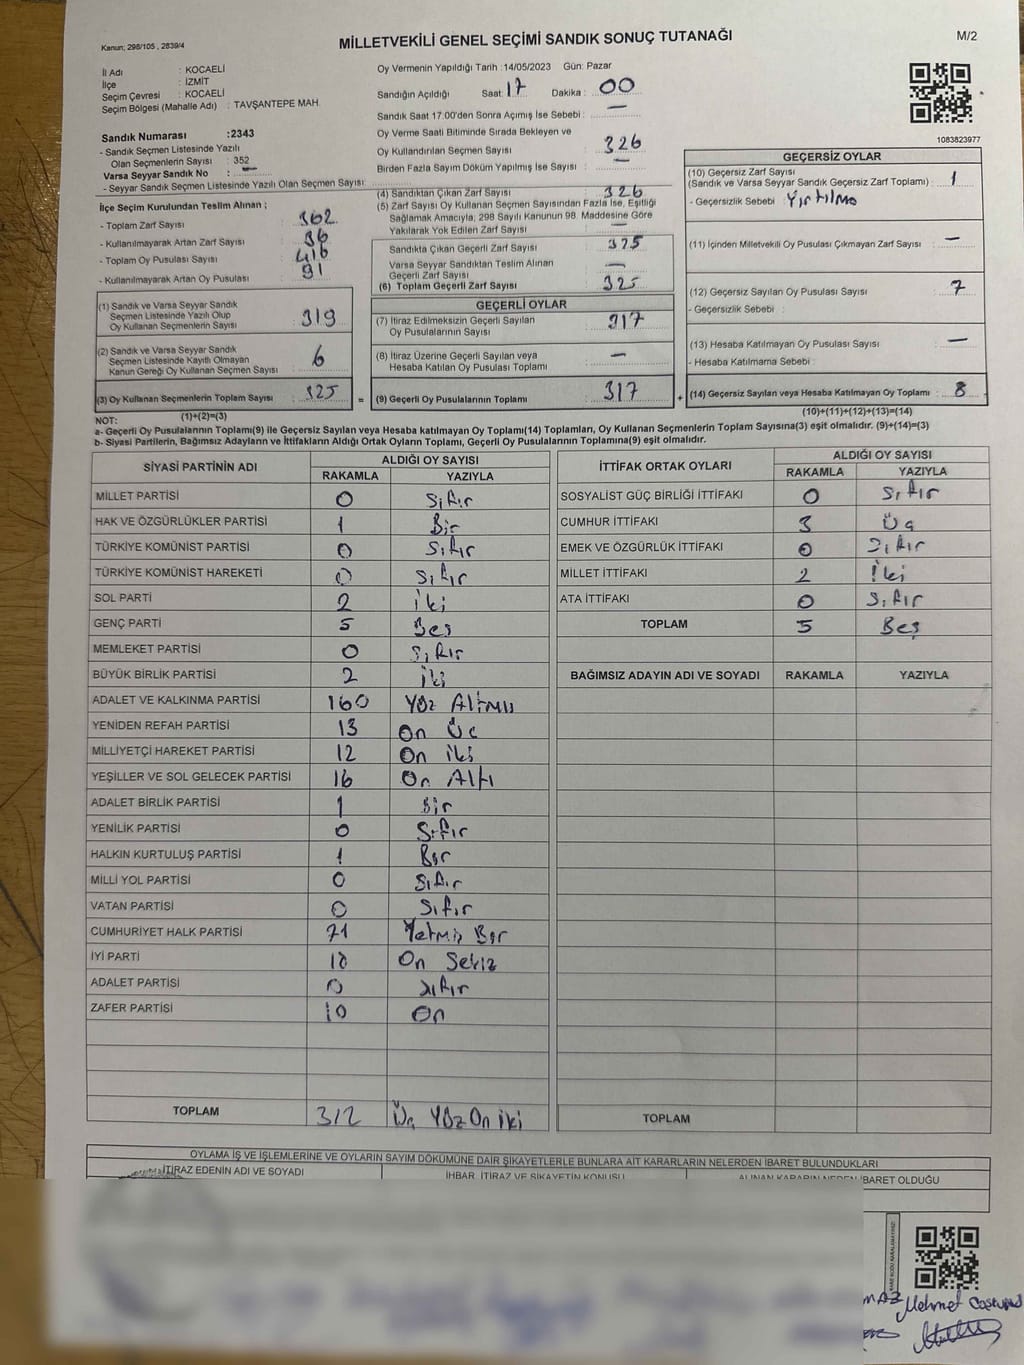 Kanun; 298/105 , 2839/4
MİLLETVEKİLİ GENEL SEÇİMİ SANDIK SONUÇ TUTANAĞI
M/2
İl Adı : KOCAELİ
İlçe : İZMİT
Seçim Çevresi : KOCAELİ
Seçim Bölgesi (Mahalle Adı) : TAVŞANTEPE MAH.
Sandık Numarası :2343
- Sandık Seçmen Listesinde Yazılı
Olan Seçmenlerin Sayısı : 352
Varsa Seyyar Sandık No : —
- Seyyar Sandık Seçmen Listesinde Yazılı Olan Seçmen Sayısı:
İlçe Seçim Kurulundan Teslim Alınan ;
- Toplam Zarf Sayısı : 362
- Kullanılmayarak Artan Zarf Sayısı : 36
- Toplam Oy Pusulası Sayısı : 416
- Kullanılmayarak Artan Oy Pusulası : 91
(1) Sandık ve Varsa Seyyar Sandık
Seçmen Listesinde Yazılı Olup
Oy Kullanan Seçmenlerin Sayısı : 319
(2) Sandık ve Varsa Seyyar Sandık
Seçmen Listesinde Kayıtlı Olmayan
Kanun Gereği Oy Kullanan Seçmen Sayısı : 6
(3) Oy Kullanan Seçmenlerin Toplam Sayısı : 325 =
(1)+(2)=(3)
Oy Vermenin Yapıldığı Tarih :14/05/2023 Gün: Pazar
Sandığın Açıldığı Saat: 17 Dakika : 00
Sandık Saat 17:00'den Sonra Açımış İse Sebebi : —
Oy Verme Saati Bitiminde Sırada Bekleyen ve
Oy Kullandırılan Seçmen Sayısı : 326
Birden Fazla Sayım Döküm Yapılmış İse Sayısı : —
(4) Sandıktan Çıkan Zarf Sayısı : 326
(5) Zarf Sayısı Oy Kullanan Seçmen Sayısından Fazla İse, Eşitliği
Sağlamak Amacıyla; 298 Sayılı Kanunun 98. Maddesine Göre
Yakılarak Yok Edilen Zarf Sayısı : —
Sandıkta Çıkan Geçerli Zarf Sayısı : 325
Varsa Seyyar Sandıktan Teslim Alınan
Geçerli Zarf Sayısı : —
(6) Toplam Geçerli Zarf Sayısı : 325
GEÇERLİ OYLAR
(7) İtiraz Edilmeksizin Geçerli Sayılan
Oy Pusulalarının Sayısı : 317
(8) İtiraz Üzerine Geçerli Sayılan veya
Hesaba Katılan Oy Pusulası Toplamı : —
(9) Geçerli Oy Pusulalarının Toplamı : 317 +
1083823977
GEÇERSİZ OYLAR
(10) Geçersiz Zarf Sayısı
(Sandık ve Varsa Seyyar Sandık Geçersiz Zarf Toplamı) : 1
- Geçersizlik Sebebi : Yırtılma
(11) İçinden Milletvekili Oy Pusulası Çıkmayan Zarf Sayısı : —
(12) Geçersiz Sayılan Oy Pusulası Sayısı : 7
- Geçersizlik Sebebi :
(13) Hesaba Katılmayan Oy Pusulası Sayısı : —
- Hesaba Katılmama Sebebi :
(14) Geçersiz Sayılan veya Hesaba Katılmayan Oy Toplamı : 8
(10)+(11)+(12)+(13)=(14)
NOT:
a- Geçerli Oy Pusulalarının Toplamı(9) ile Geçersiz Sayılan veya Hesaba katılmayan Oy Toplamı(14) Toplamları, Oy Kullanan Seçmenlerin Toplam Sayısına(3) eşit olmalıdır. (9)+(14)=(3)
b- Siyasi Partilerin, Bağımsız Adayların ve İttifakların Aldığı Ortak Oyların Toplamı, Geçerli Oy Pusulalarının Toplamına(9) eşit olmalıdır.
SİYASİ PARTİNİN ADI ALDIĞI OY SAYISI
RAKAMLA YAZIYLA
MİLLET PARTİSİ 0 Sıfır
HAK VE ÖZGÜRLÜKLER PARTİSİ 1 Bir
TÜRKİYE KOMÜNİST PARTİSİ 0 Sıfır
TÜRKİYE KOMÜNİST HAREKETİ 0 Sıfır
SOL PARTİ 2 iki
GENÇ PARTİ 5 Beş
MEMLEKET PARTİSİ 0 Sıfır
BÜYÜK BİRLİK PARTİSİ 2 iki
ADALET VE KALKINMA PARTİSİ 160 Yüz Altmış
YENİDEN REFAH PARTİSİ 13 On Üç
MİLLİYETÇİ HAREKET PARTİSİ 12 On iki
YEŞİLLER VE SOL GELECEK PARTİSİ 16 On Altı
ADALET BİRLİK PARTİSİ 1 Bir
YENİLİK PARTİSİ 0 Sıfır
HALKIN KURTULUŞ PARTİSİ 1 Bir
MİLLİ YOL PARTİSİ 0 Sıfır
VATAN PARTİSİ 0 Sıfır
CUMHURİYET HALK PARTİSİ 71 Yetmiş Bir
İYİ PARTİ 18 On Sekiz
ADALET PARTİSİ 0 sıfır
ZAFER PARTİSİ 10 On
TOPLAM 312 Üç Yüz On iki
İTTİFAK ORTAK OYLARI ALDIĞI OY SAYISI
RAKAMLA YAZIYLA
SOSYALİST GÜÇ BİRLİĞİ İTTİFAKI 0 Sıfır
CUMHUR İTTİFAKI 3 Üç
EMEK VE ÖZGÜRLÜK İTTİFAKI 0 Sıfır
MİLLET İTTİFAKI 2 İki
ATA İTTİFAKI 0 Sıfır
TOPLAM 5 Beş
BAĞIMSIZ ADAYIN ADI VE SOYADI RAKAMLA YAZIYLA
TOPLAM
OYLAMA İŞ VE İŞLEMLERİNE VE OYLARIN SAYIM DÖKÜMÜNE DAİR ŞİKAYETLERLE BUNLARA AİT KARARLARIN NELERDEN İBARET BULUNDUKLARI
İTİRAZ EDENİN ADI VE SOYADI İHBAR, İTİRAZ VE ŞİKAYETİN KONUSU ALINAN KARARIN NEDEN İBARET OLDUĞU
Mehmet